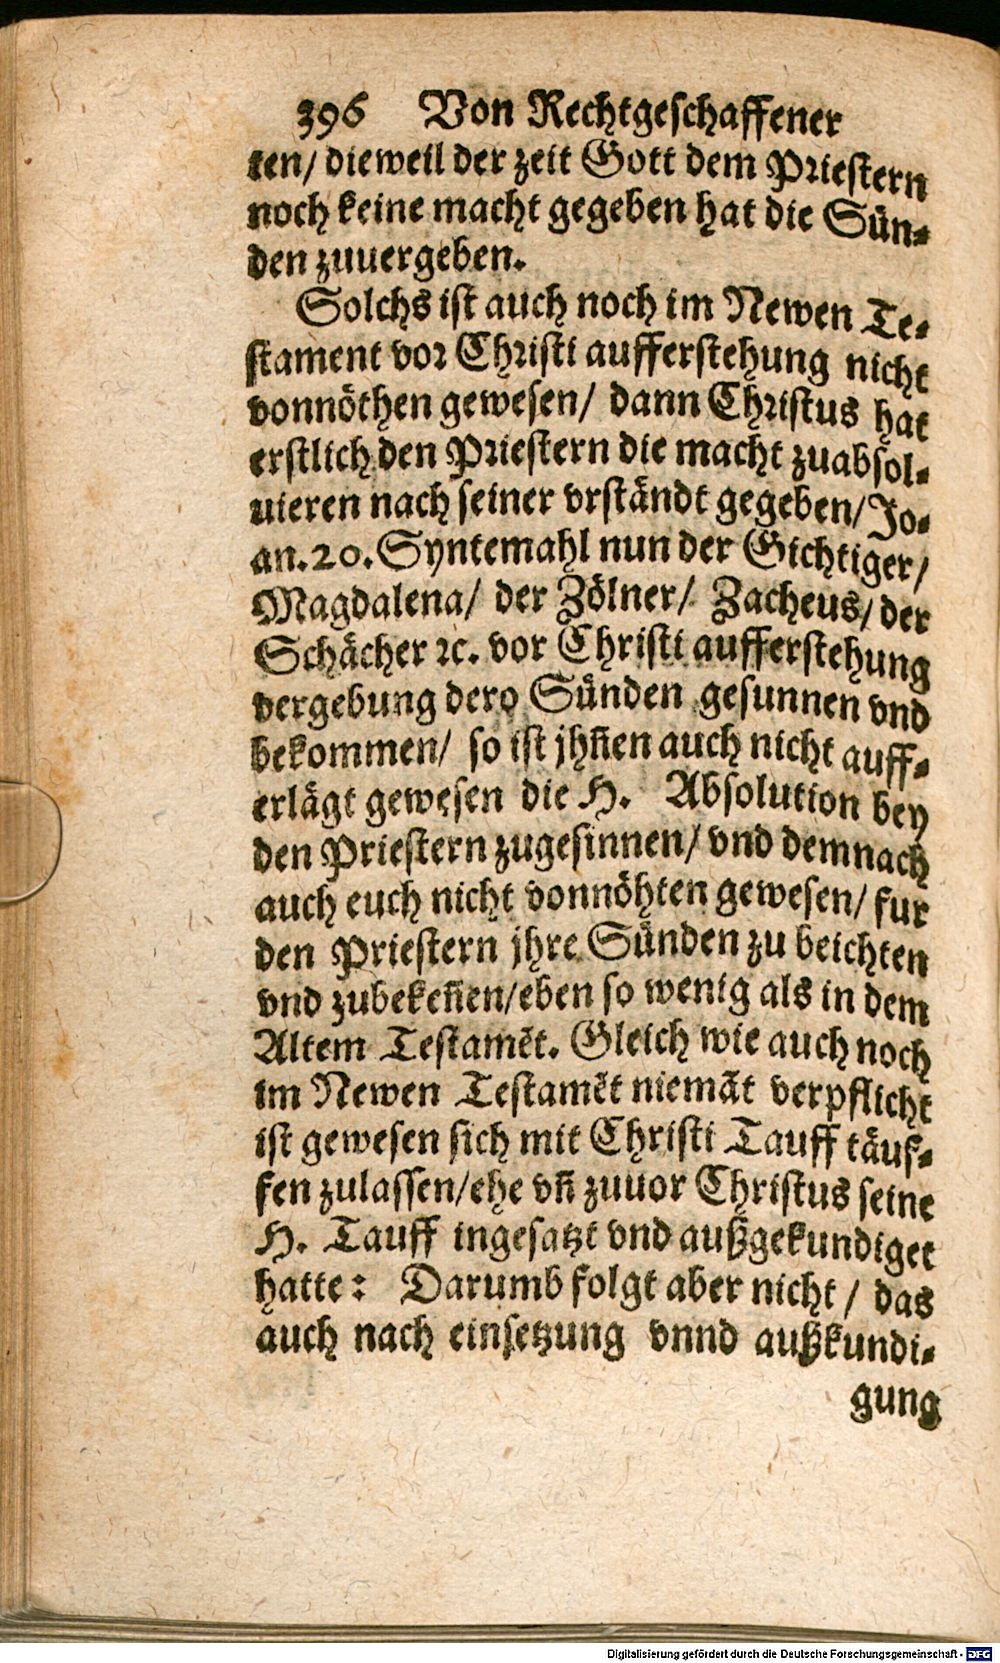 396 Von Rechtgeschaffener
ten/ dieweil der zeit Gott dem Priestern
noch keine macht gegeben hat die Sün-
den zuuergeben.
Solchs ist auch noch im Newen Te-
stament vor Christi aufferstehung nicht
vonnöthen gewesen/ dann Christus hat
erstlich den Priestern die macht zuabsol-
uieren nach seiner vrständt gegeben/ Jo-
an. 20. Syntemahl nun der Gichtiger/
Magdalena/ der Zölner/ Zacheus/ der
Schächer ꝛc. vor Christi aufferstehung
vergebung dero Sünden gesunnen vnd
bekommen/ so ist jhñen auch nicht auff-
erlägt gewesen die H. Absolution bey
den Priestern zugesinnen/ vnd demnach
auch euch nicht vonnöhten gewesen/ fur
den Priestern jhre Sünden zu beichten
vnd zubekeñen/ eben so wenig als in dem
Altem Testamēt. Gleich wie auch noch
im Newen Testamēt niemāt verpflicht
ist gewesen sich mit Christi Tauff täuf-
fen zulassen/ ehe vñ zuuor Christus seine
H. Tauff ingesatzt vnd außgekundiget
hatte: Darumb folgt aber nicht/ das
auch nach einsetzung vnnd außkundi-
gung
Digitalisierung gefördert durch die Deutsche Forschungsgemeinschaft - DFG